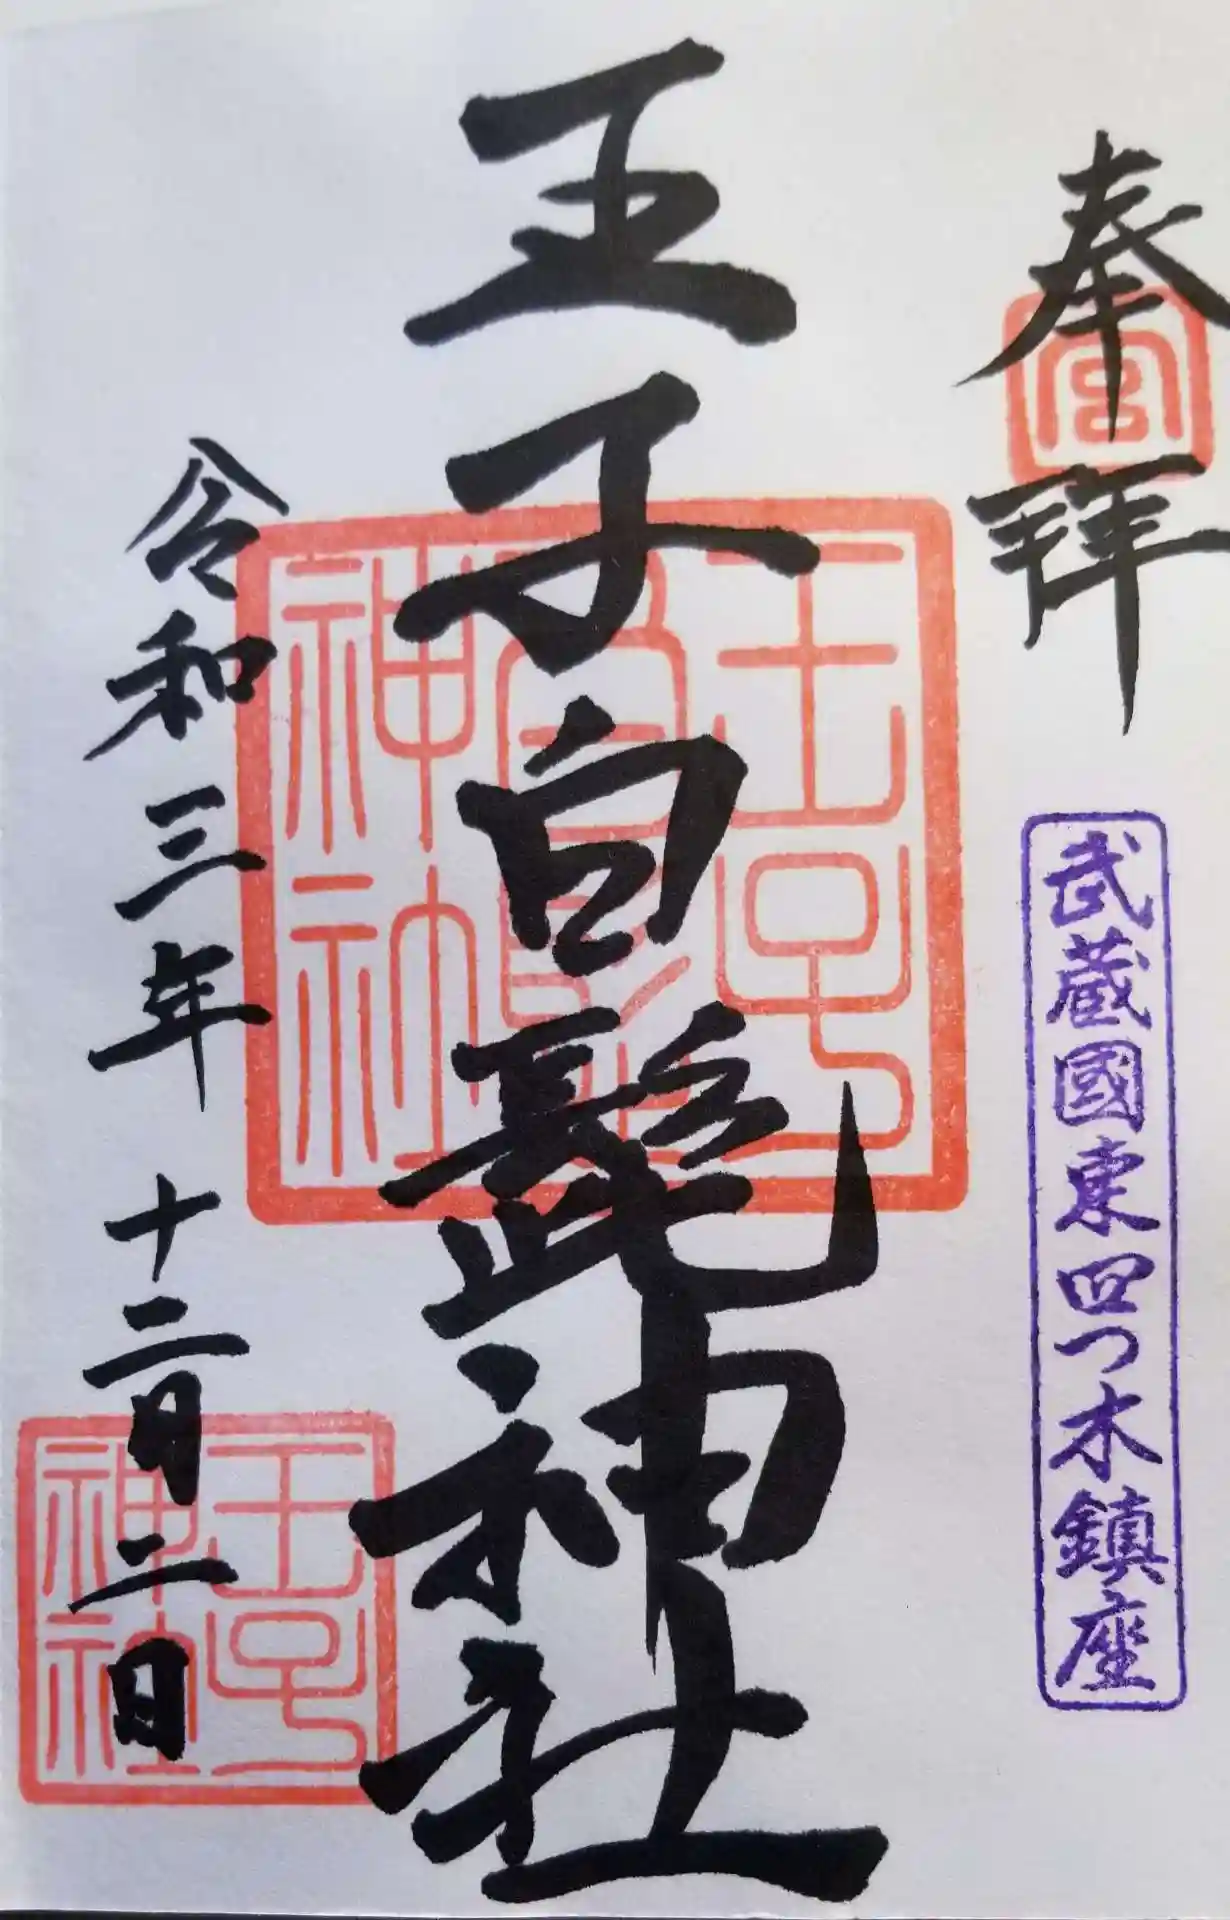 奉拝
宮
武蔵國東四つ木鎮座
王子白髭神社
王子
白髭
神社
令和三年 十二月二日
王子
神社